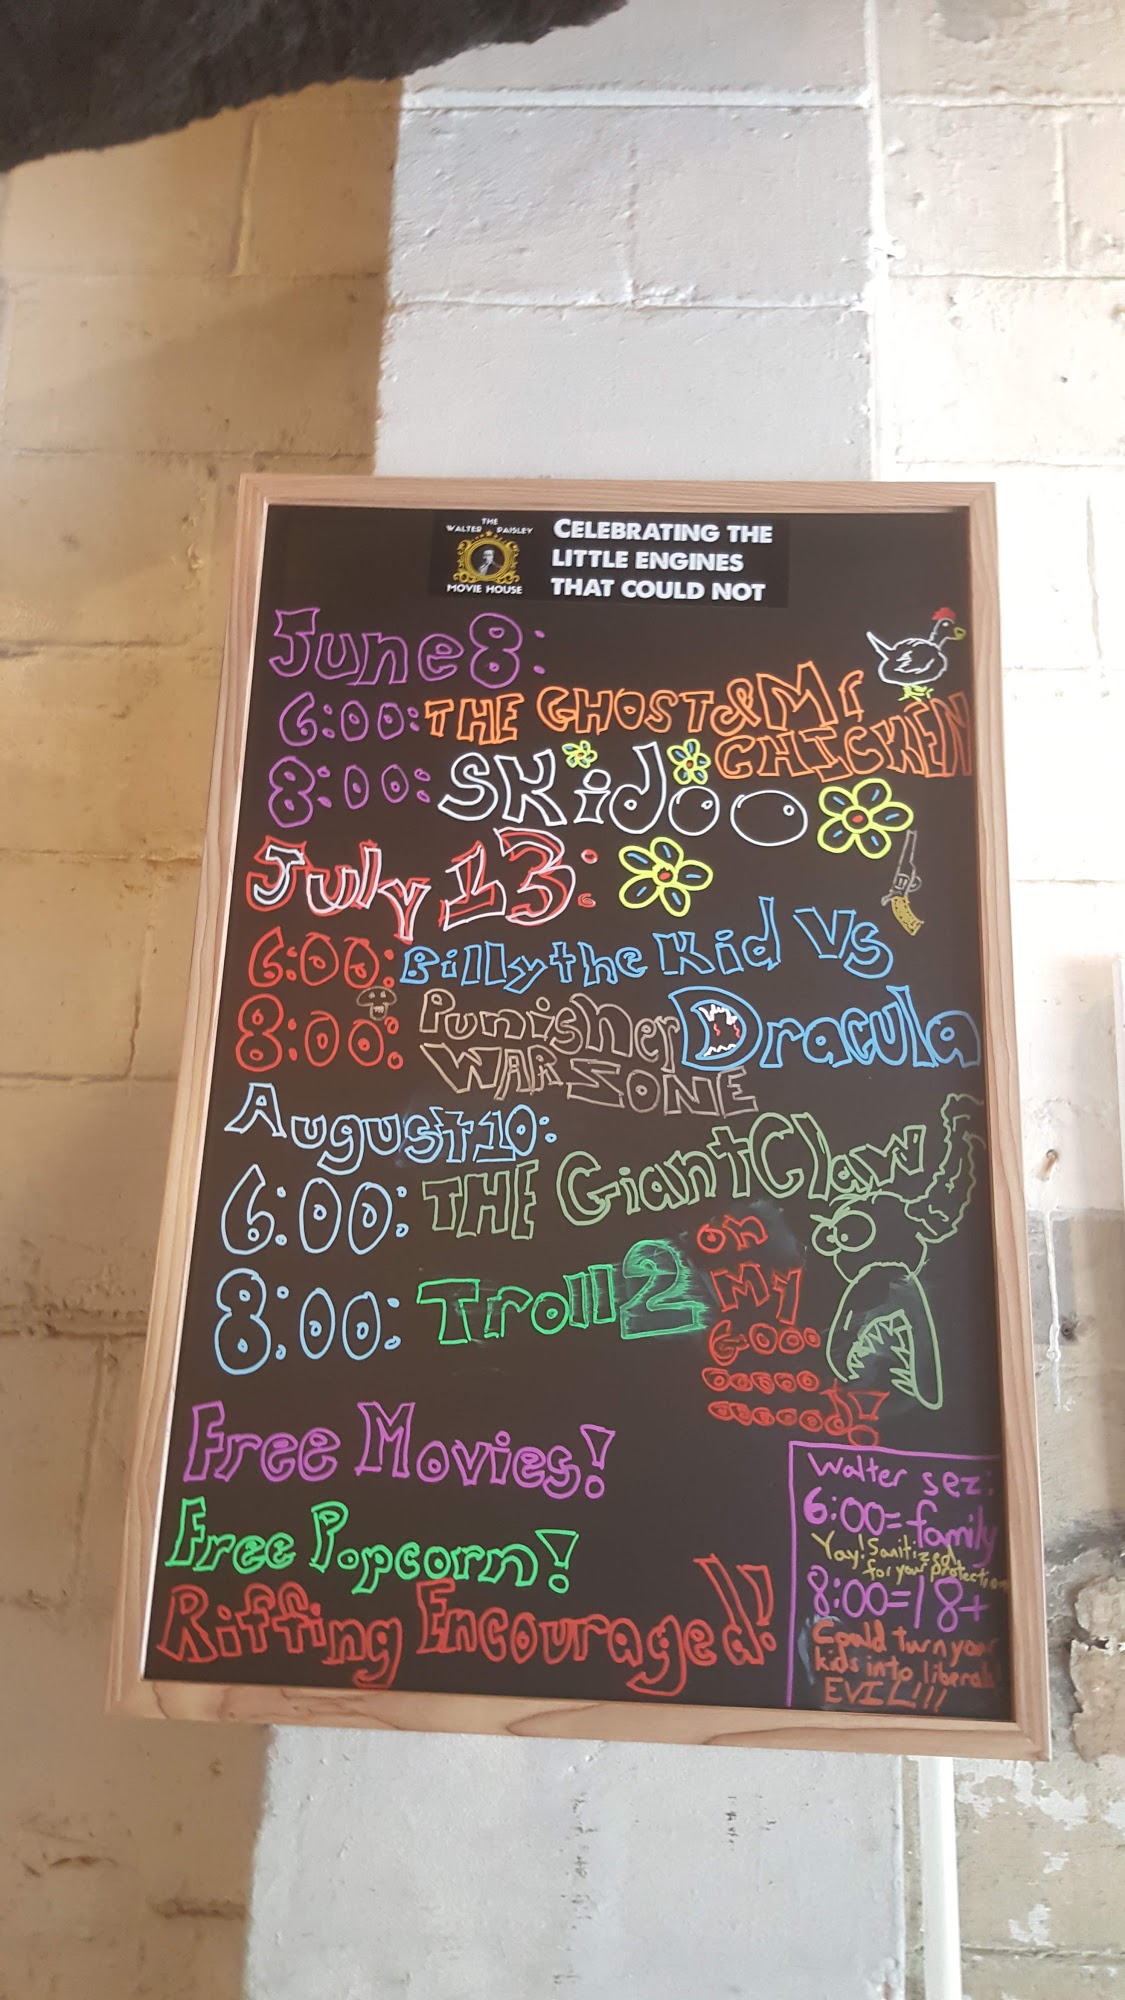 THE
WALTER PAISLEY
MOVIE HOUSE
CELEBRATING THE
LITTLE ENGINES
THAT COULD NOT
June 8:
6:00: THE GHOST & Mr
CHICKEN
8:00: SKidoo
July 13:
6:00: Billy the Kid Vs
Dracula
8:00: Punisher
WAR ZONE
August 10:
6:00: THE Giant Claw
8:00: Troll 2
on
My
Gooo
ooooo
oooood!!
Free Movies!
Free Popcorn!
Riffing Encouraged!!
Walter sez:
6:00=family
Yay! Sanitized
for your protection
8:00=18+
Could turn your
kids into liberals!
EVIL!!!